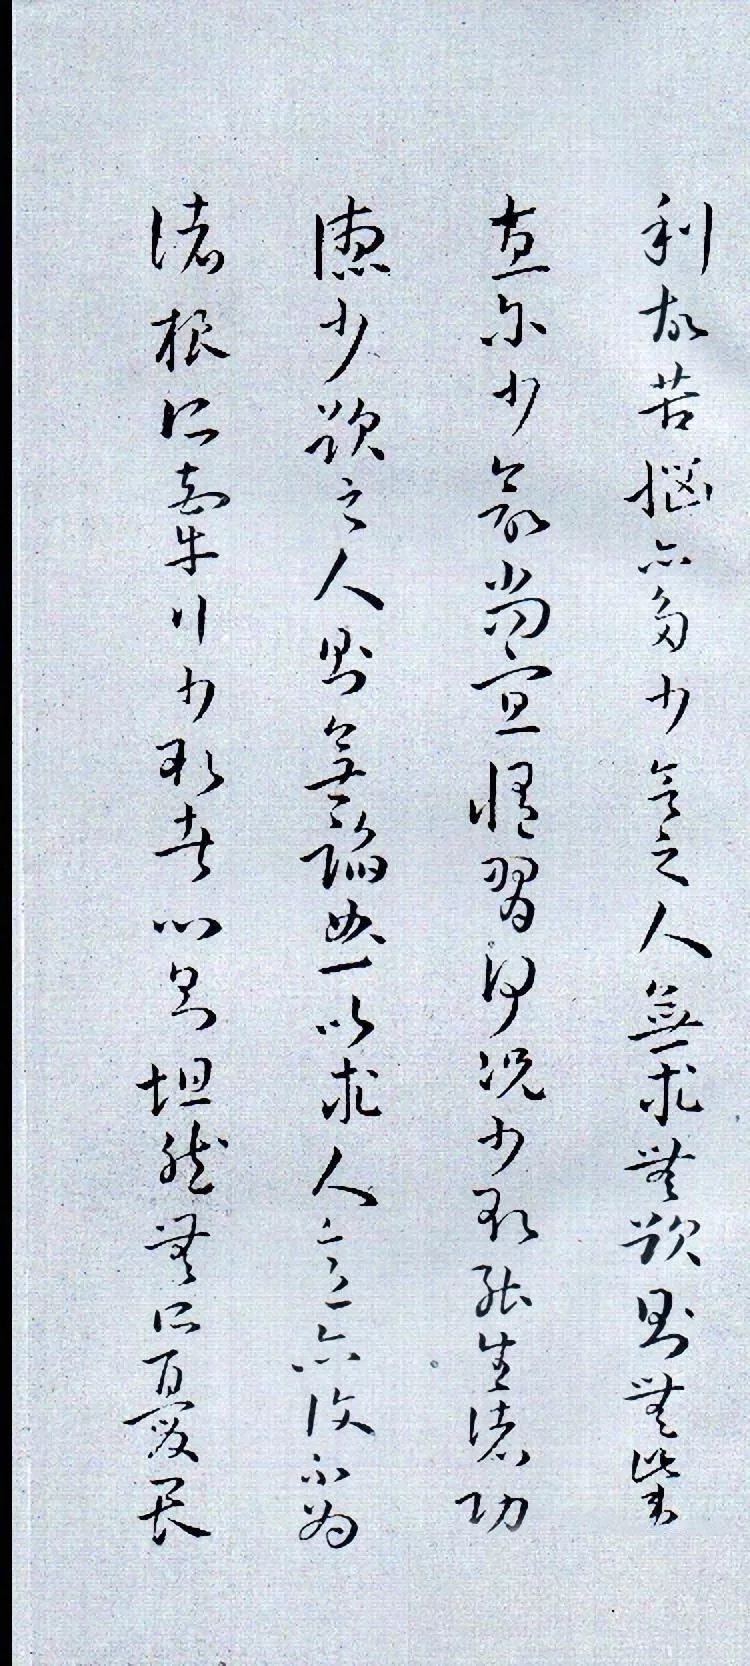 利故苦惱亦多少欲之人無求無欲則無此患
直爾少欲尚宜修習何況少欲能生諸功
德少欲之人則無諂曲以求人意亦復不為
諸根所牽行少欲者心則坦然無所憂畏